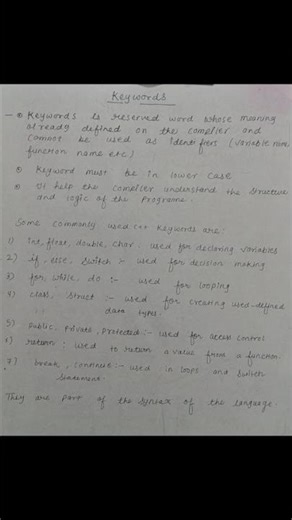 Keywords
- ⊙ Keywords is reserved word whose meaning
already defined on the complier and
cannot be used as identifiers (variable name
function name etc)
⊙ Keyword must be in lower case
⊙ It help the compiler understand the structure
and logic of the programe.
Some commonly used c++ keywords are:
1) int, float, double, char : used for declaring variables
2) if, else, switch :- used for decision making
3) for, while, do :- used for looping
4) class, struct :- used for creating user-defined
data types.
5) public, private, protected :- used for access control
6) return : used to return a value from a function.
7) break, continue :- used in loops and switch
statement.
They are part of the syntax of the language.